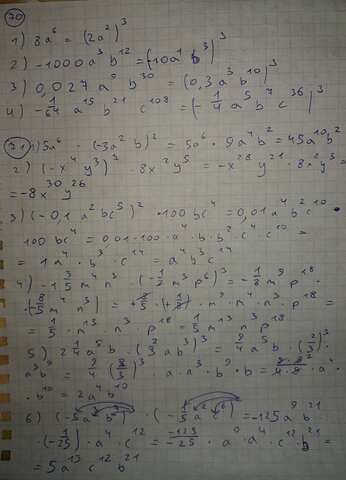 70
1) 8a⁶ = (2a²)³
2) -1000a³b¹² = (-10a¹b⁴)³
3) 0,027a⁹b³⁰ = (0,3a³b¹⁰)³
4) -1/64 a¹⁵b²¹c¹⁰⁸ = (-1/4 a⁵b⁷c³⁶)³
71 1) 5a⁶ · (-3a²b)² = 5a⁶ · 9a⁴b² = 45a¹⁰b²
2) (-x⁴y³)⁷ · 8x²y⁵ = -x²⁸y²¹ · 8x²y⁵ =
= -8x³⁰y²⁶
3) (-0,1a²bc⁵)² · 100bc⁴ = 0,01a⁴b²c¹⁰
100bc⁴ = 0,01·100·a⁴·b·b²·c⁴·c¹⁰ =
= 1a⁴·b³·c¹⁴ = a⁴b³c¹⁴
4) -1 3/5 m⁴n³ · (-1/2 m³p⁶)³ = -1/8 m⁹p¹⁸ ·
(-8/5 m⁴n³) =
= 1/5 · m¹³ · n³ · p¹⁸ = 1/5 m¹³n³p¹⁸
5) 2 1/4 a⁵b · (2/3 ab³)³ = 9/4 a⁵b · (2/3)³ ·
a³b⁹ =
· b¹⁰ = 2a⁴b¹⁰
6)
· (-1/25) · a⁴ · c¹² = -125/-25 · a⁹ · a⁴ · c¹² · b²¹ =
= 5a¹³c¹²b²¹